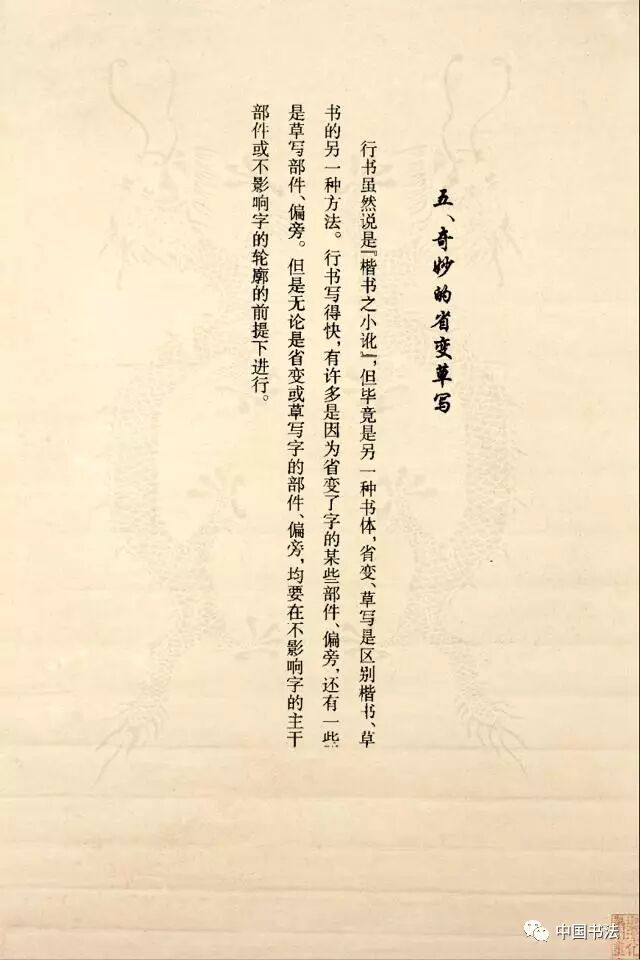 五、奇妙的省变草写
行书虽然说是『楷书之小讹』，但毕竟是另一种书体，省变、草写是区别楷书、草
书的另一种方法。行书写得快，有许多是因为省变了字的某些部件、偏旁，还有一些
是草写部件、偏旁。但是无论是省变或草写字的部件、偏旁，均要在不影响字的主干
部件或不影响字的轮廓的前提下进行。
中国书法